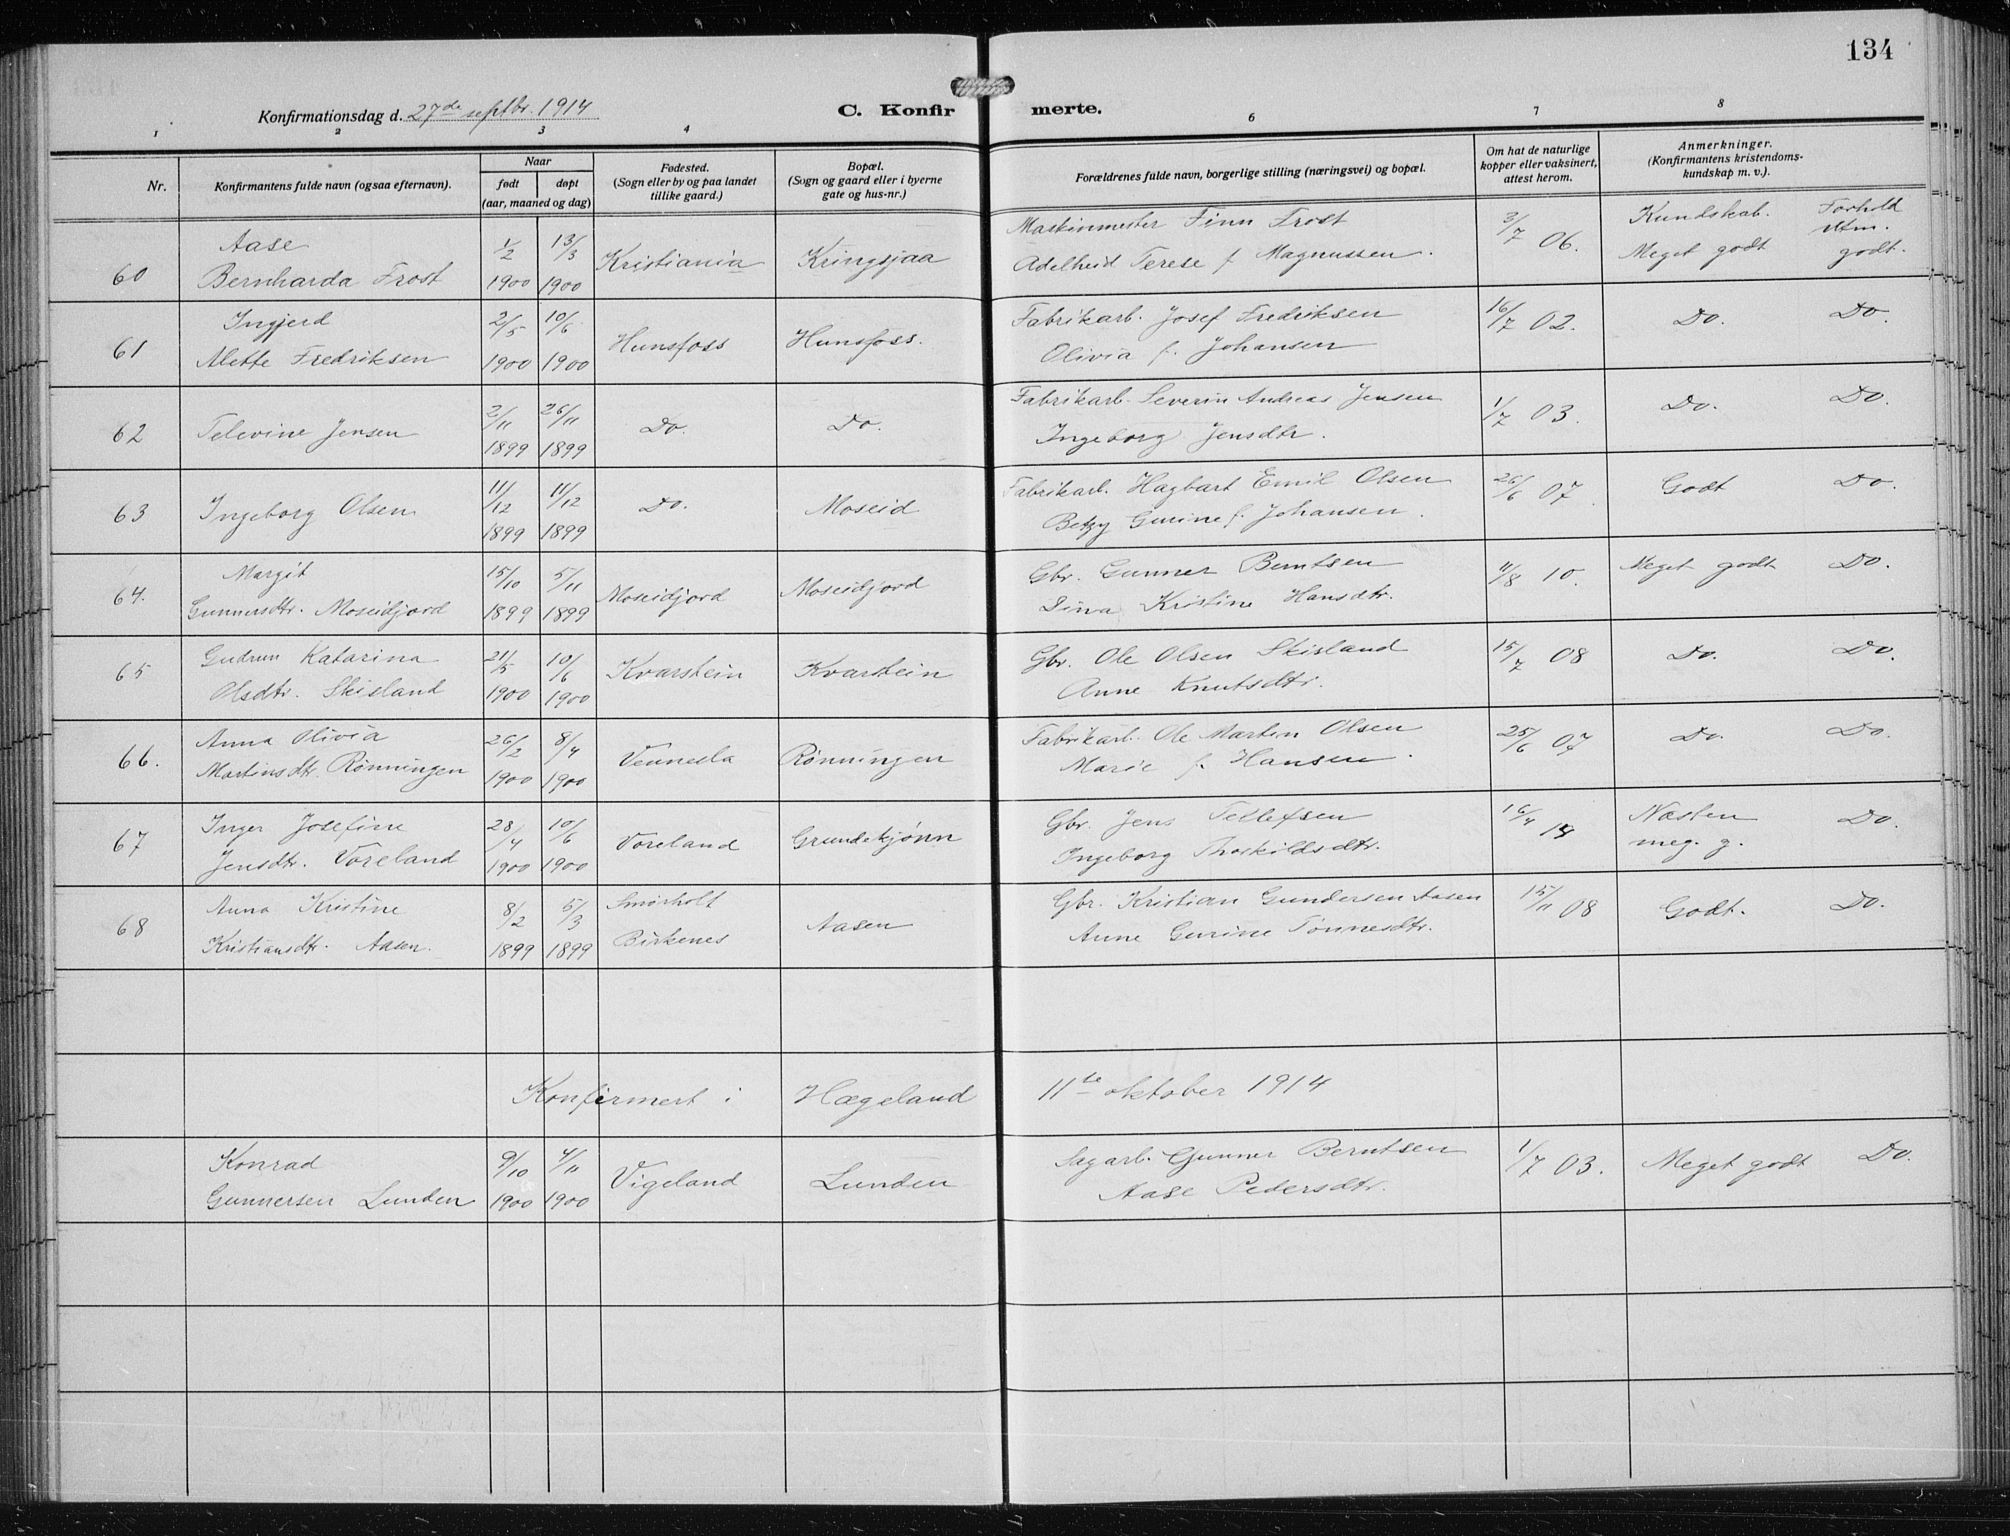 134
Konfirmationsdag d. 27de septbr. 1914
C. Konfirmerte.
1 2 3 4 5 6 7 8
Nr.
Konfirmantens fulde navn (ogsaa efternavn).
Naar
født døpt
(aar, maaned og dag)
Fødested.
(Sogn eller by og paa landet
tillike gaard.)
Bopæl.
(Sogn og gaard eller i byerne
gate og hus-nr.)
Forældrenes fulde navn, borgerlige stilling (næringsvei) og bopæl.
Om hat de naturlige
kopper eller vaksinert,
attest herom.
Anmerkninger.
(Konfirmantens kristendoms-
kundskap m. v.).
Kundskab. Forhold
Aase 1/2 13/3 Maskinmester Finn Frost 3/7 06.
60 Bernharda Frost 1900 1900 Kristiania Kringsjaa Adelheid Terese f. Magnussen. Meget godt godt.
Ingjerd 2/5 10/6 Fabrikarb. Josef Fredriksen 16/7 02. Do. Do.
61 Alette Fredriksen 1900 1900 Hunsfoss Hunsfoss. Olivia f. Johansen
2/11 26/11 Fabrikarb. Severin Andreas Jensen 1/7 03. Do. Do.
62 Televine Jensen 1899 1899 Do. Do. Ingeborg Jensdtr.
11/12 11/12 Fabrikarb. Hagbart Emil Olsen 26/6 07. Godt Do.
63 Ingeborg Olsen 1899 1899 Do. Moseid Betzy Gurine f. Johansen.
Margit 15/10 5/11 Gbr. Gunner Berntsen 11/8 10. Meget godt Do.
64. Gunnersdtr. Moseidjord 1899 1899 Moseidjord Moseidjord Dina Kristine Hansdtr.
Gudrun Katarina 21/5 10/6 Gbr. Ole Olsen Skisland 15/7 08 Do. Do.
65 Olsdtr. Skisland 1900 1900 Kvarstein Kvarstein Anne Knutsdtr.
Anna Olivia 26/2 8/4 Fabrikarb. Ole Martin Olsen 25/6 07 Do. Do.
66. Martinsdtr. Rønningen 1900 1900 Vennesla Rønningen Marie f. Hansen.
Inger Josefine 28/4 10/6 Gbr. Jens Tellefsen 16/4 14 Næsten Do.
67 Jensdtr. Voreland 1900 1900 Voreland Grundekjønn Ingeborg Thoskildsdtr. meg. g.
Anna Kristine 8/2 5/3 Smørholt Gbr. Kristian Gundersen Aasen 15/11 08 Godt. Do.
68 Kristiansdtr. Aasen. 1899 1899 Birkenes Aasen Anne Gurine Tønnesdtr.
Konfirmert i Hægeland 11te oktober 1914
Konrad 9/10 4/11 Sagarb. Gunner Berntsen 1/7 03. Meget godt Do.
Gunnersen Lunden 1900 1900 Vigeland Lunden Aase Pedersdtr.